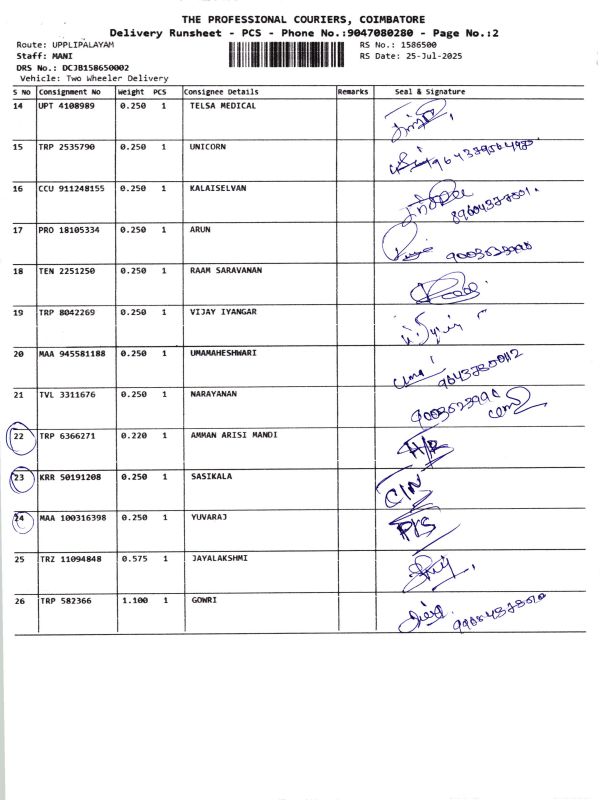 THE PROFESSIONAL COURIERS, COIMBATORE
Delivery Runsheet - PCS - Phone No.:9047080280 - Page No.:2
Route: UPPLIPALAYAM RS No.: 1586500
Staff: MANI RS Date: 25-Jul-2025
DRS No.: DCJB158650002
Vehicle: Two Wheeler Delivery
S No Consignment No Weight PCS Consignee Details Remarks Seal & Signature
14 UPT 4108989 0.250 1 TELSA MEDICAL
15 TRP 2535790 0.250 1 UNICORN
16 CCU 911248155 0.250 1 KALAISELVAN
17 PRO 18105334 0.250 1 ARUN
18 TEN 2251250 0.250 1 RAAM SARAVANAN
19 TRP 8042269 0.250 1 VIJAY IYANGAR
20 MAA 945581188 0.250 1 UMAMAHESHWARI
21 TVL 3311676 0.250 1 NARAYANAN
22 TRP 6366271 0.220 1 AMMAN ARISI MANDI
23 KRR 50191208 0.250 1 SASIKALA
24 MAA 100316398 0.250 1 YUVARAJ
25 TRZ 11094848 0.575 1 JAYALAKSHMI
26 TRP 582366 1.100 1 GOWRI